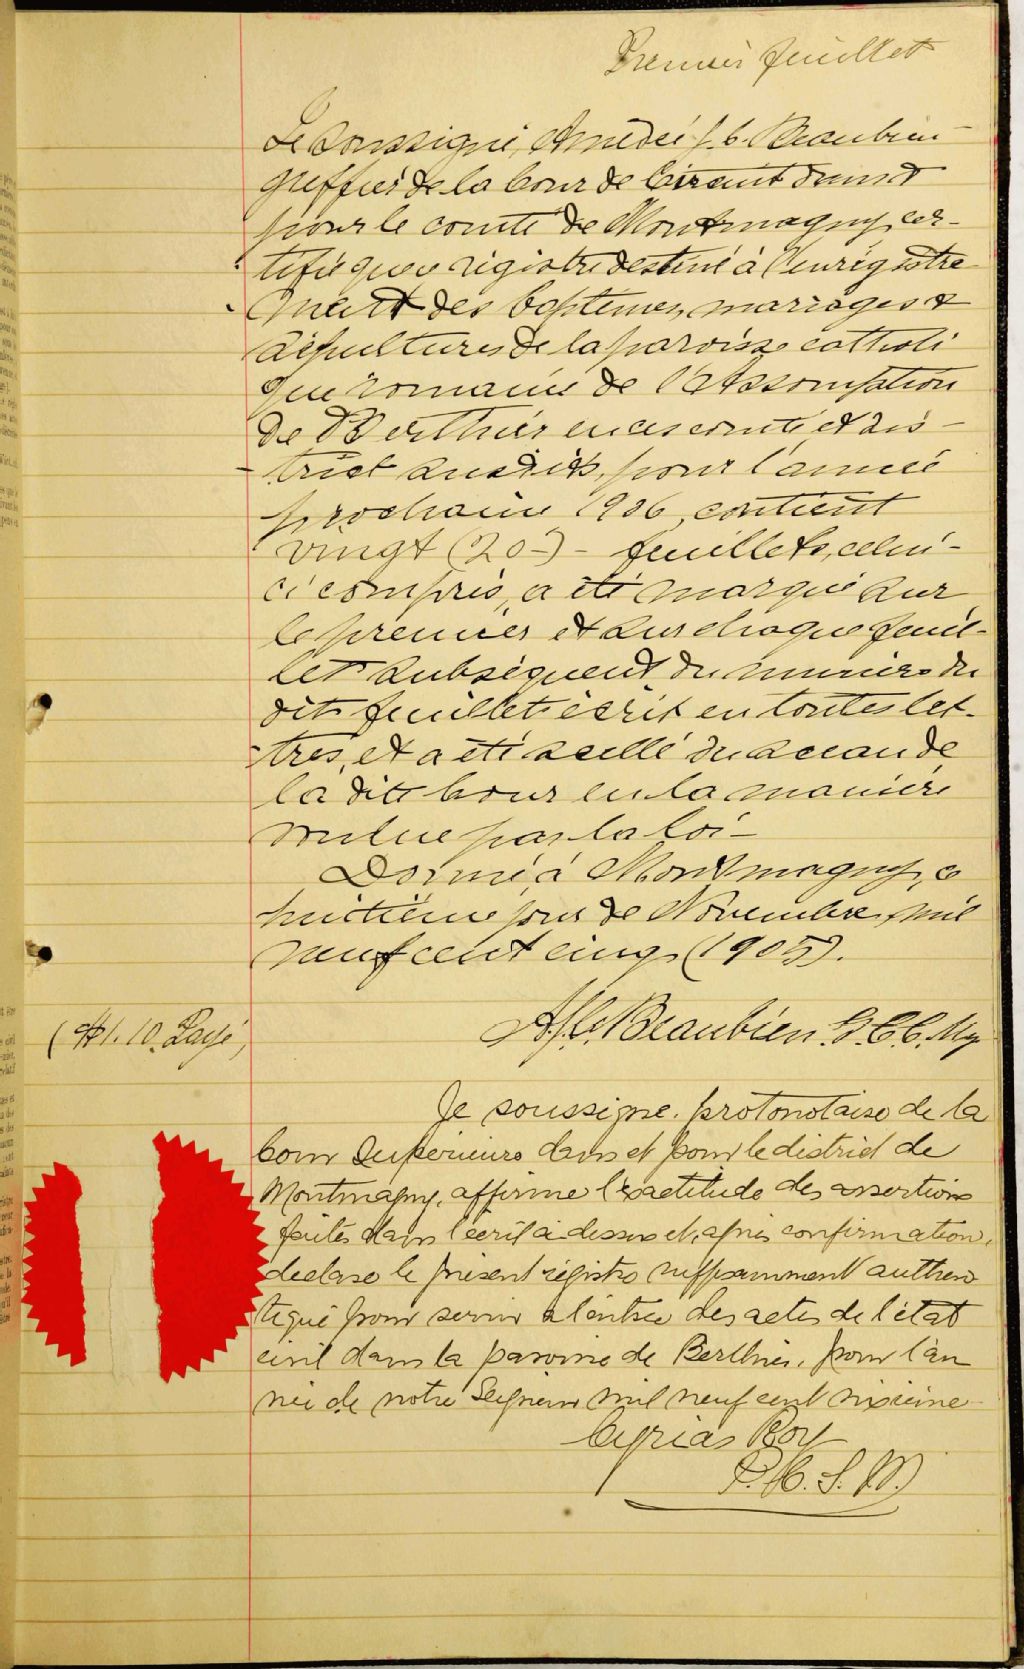 Premier feuillet
Le soussigné, Amédée J. C. Beaubien
greffier de la Cour de Circuit dans et
pour le comté de Montmagny, cer-
tifie que ce régistre destiné à l'enrégistre
ment des baptêmes, mariages &
sépultures de la paroisse catholi
que romaine de l'Assomption
de Berthier en ces comté et dis-
trict susdits, pour l'année
prochaine 1906, contient
vingt (20-) - feuillets, celui-
ci compris, a été marqué sur
le premier et sur chaque feuil-
let subséquent du numéro du
dit feuillet écrit en toutes let-
tres, et a été scellé du sceau de
la dite Cour en la manière
voulue par la loi-
Donné, à Montmagny, ce
huitième jour de Novembre mil
neuf cent cinq (1905).
(#1.10. Payé,
A.J.C. Beaubien. G.C.C. My
Je soussigné. protonotaire de la
Cour Supérieure dans et pour le district de
Montmagny, affirme l'exactitude des assertions
faites dans l'écrit ci-dessus et, après confirmation,
declare le présent régistre suffisamment authen
tiqué pour servir à l'entrée des actes de l'état
civil dans la paroisse de Berthier, pour l'an
née de notre Seigneur mil neuf cent sixième
Cyrias Roy
P. C. S. M.